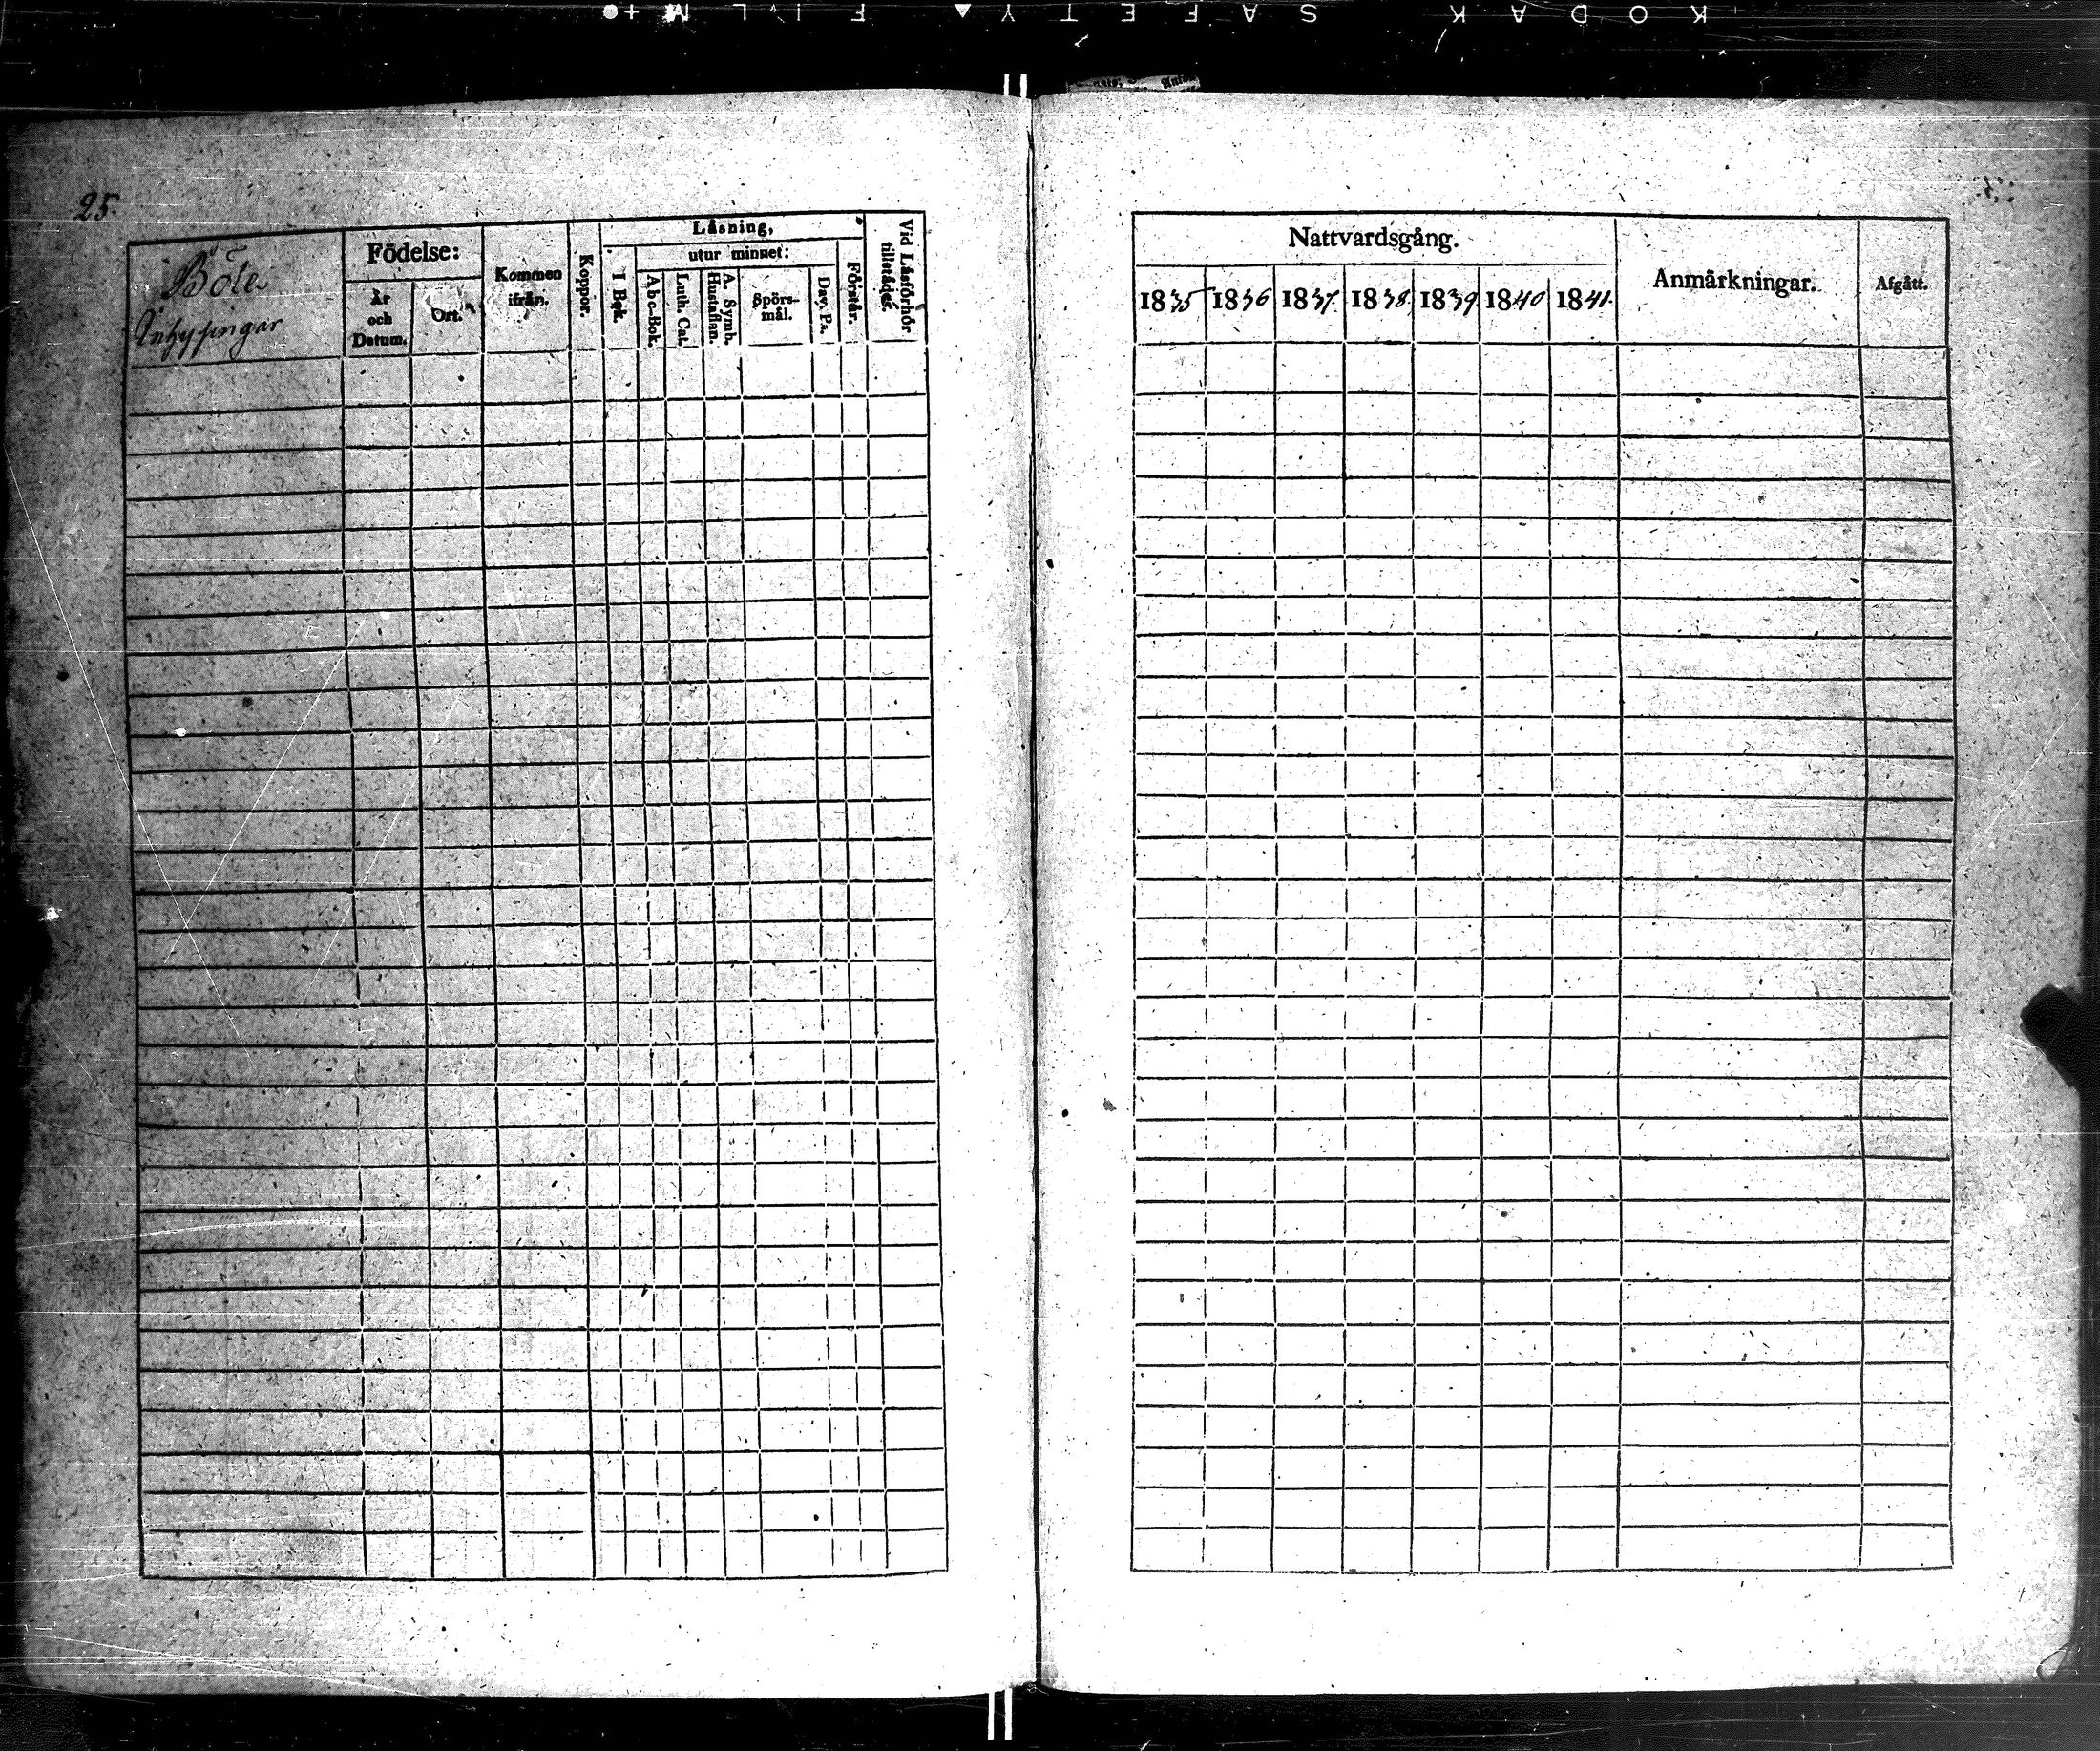 KODAK SAFETY FILM
25.
Böle
Inhysingar
Födelse:
År
och
Datum.
Ort.
Kommen
ifrån.
Koppor.
Läsning,
I Bok.
utur minnet:
Abc-Bok.
Luth. Cat.
A. Symb.
Hustaflan.
Spörs-
mål.
Dav. Ps.
Förstår.
Vid Läsförhör
tillstädes.
Nattvardsgång.
1835 1836 1837. 1838. 1839 1840 1841.
Anmärkningar.
Afgått.